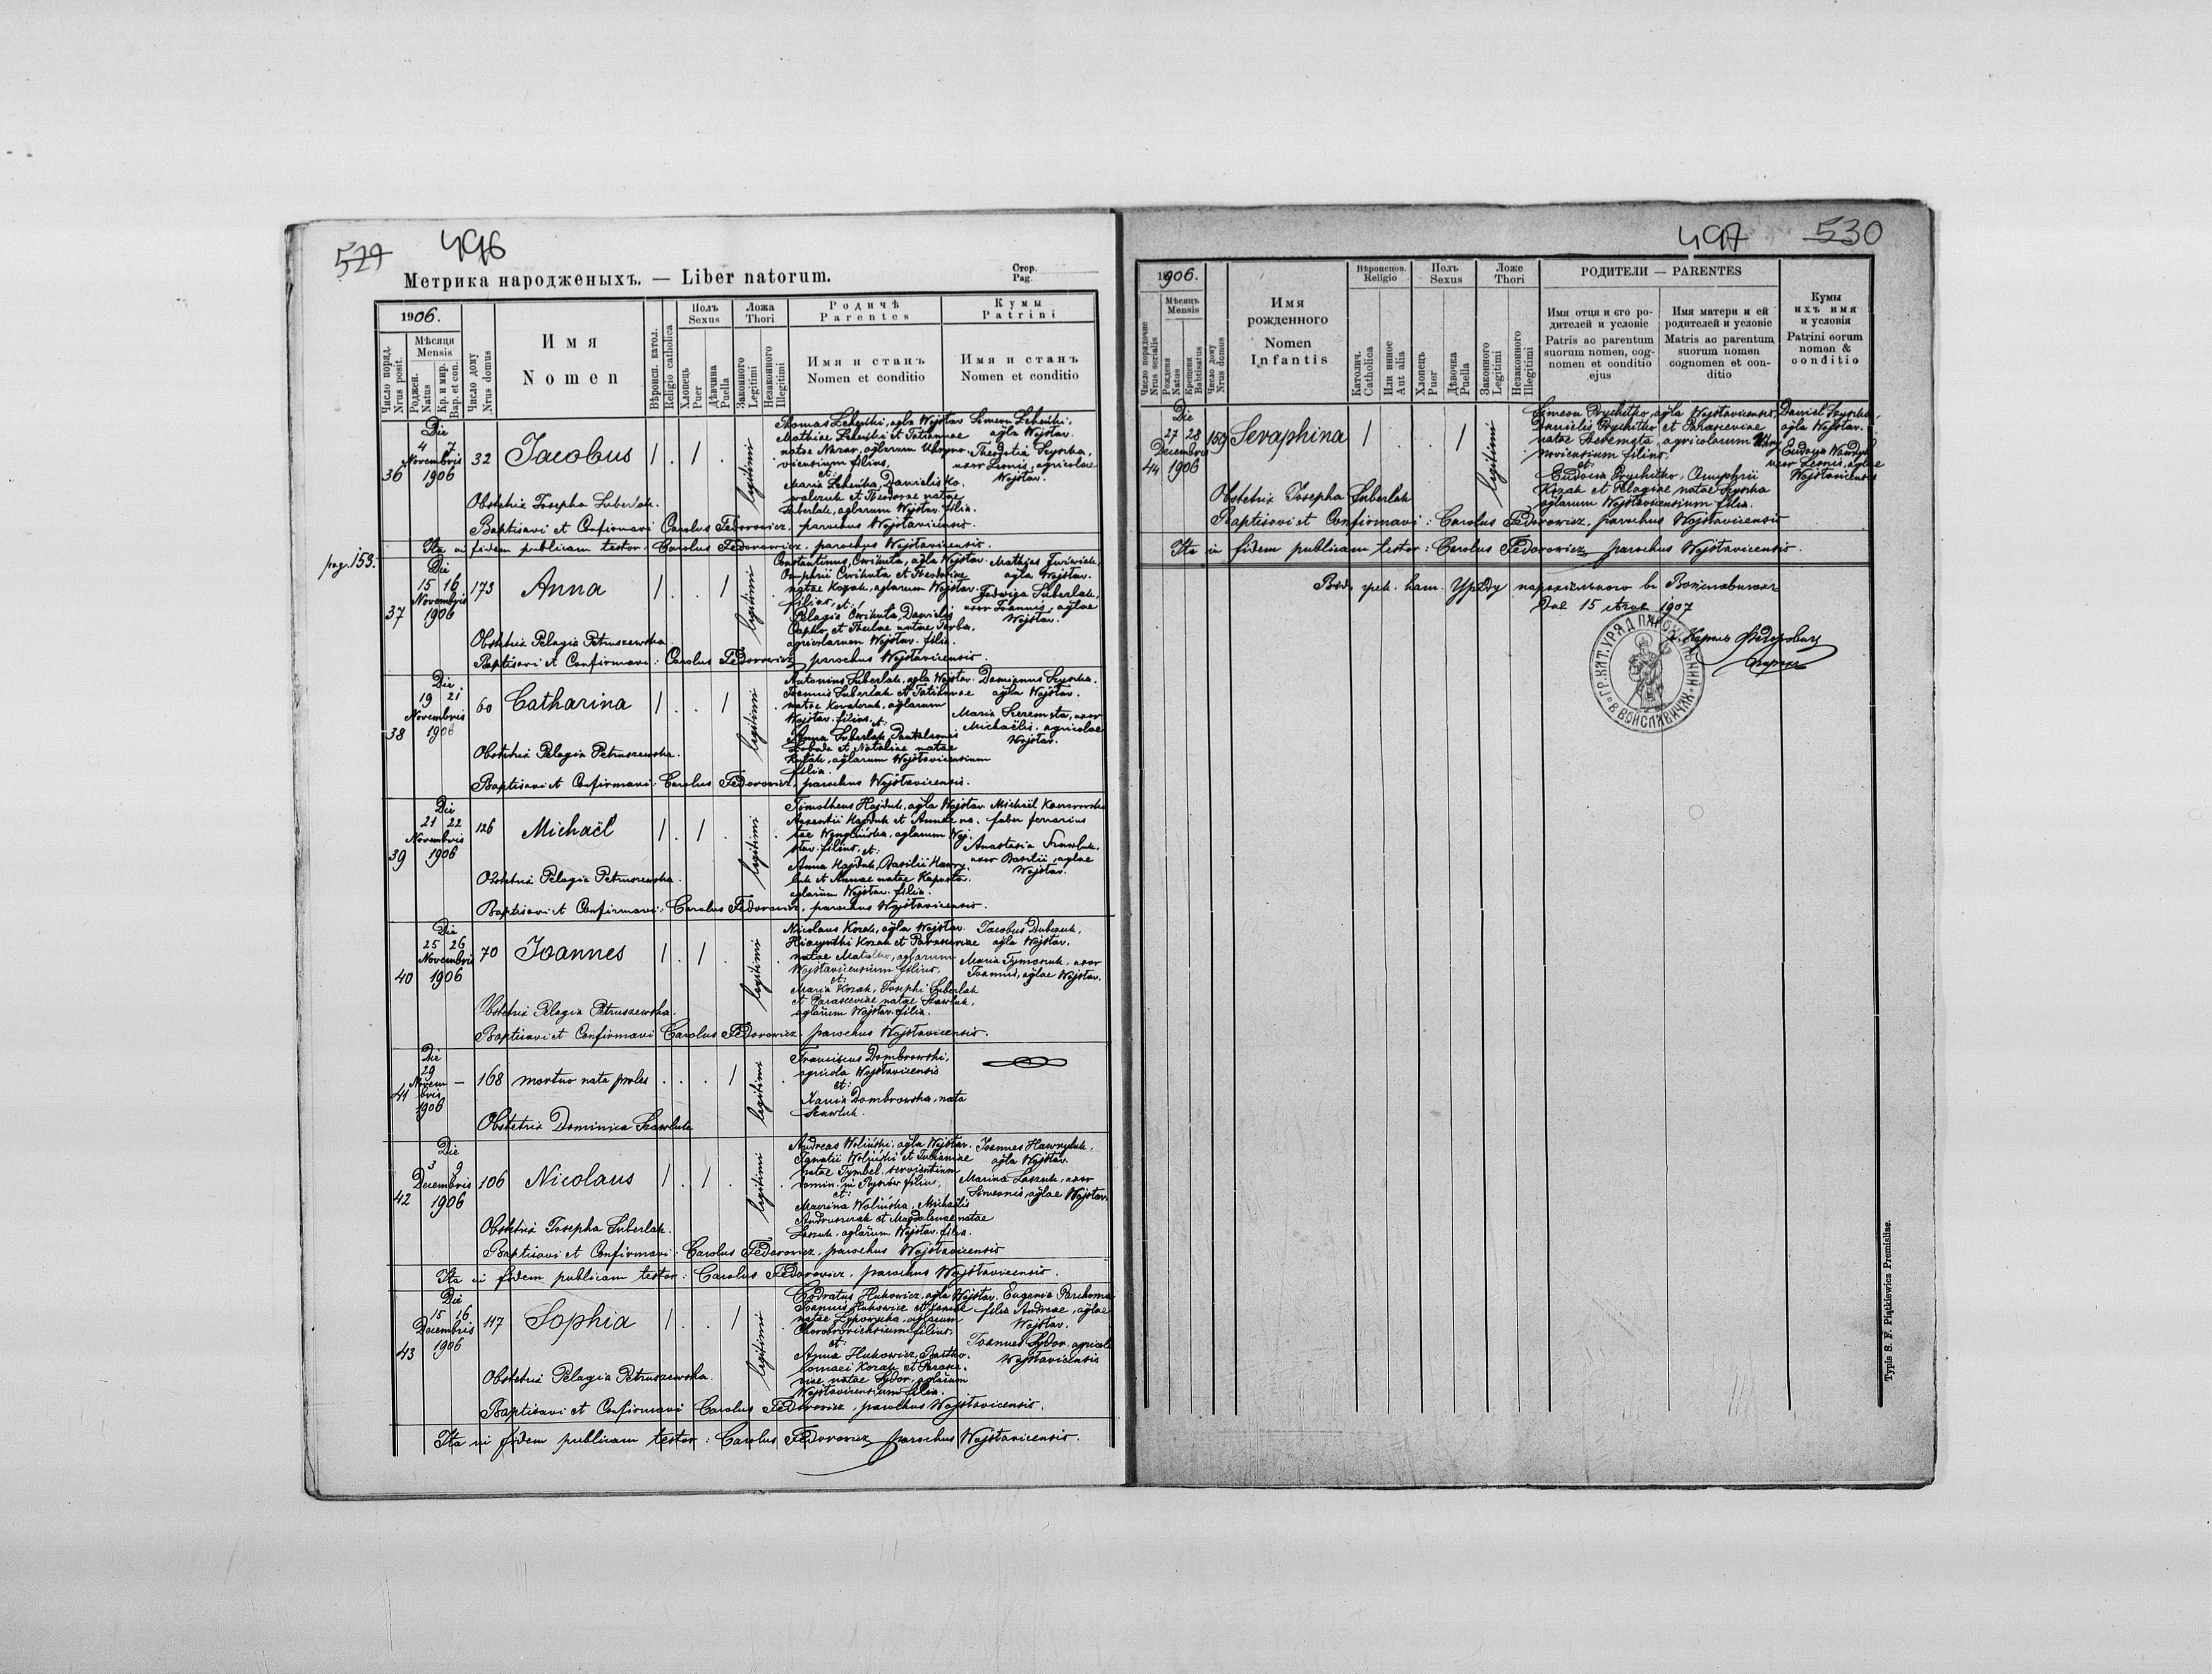 529 496
Метрика народженыхъ. — Liber natorum.
Стор.
Pag.
1906.
Число поряд.
Nrus posit.
Мѣсяця
Mensis
Роджен.
Natus
Кр. и мир.
Bap. et con.
Число дому
Nrus domus
Имя
Nomen
Вѣроисп. катол.
Religio catholica
Полъ
Sexus
Хлопець
Puer
Дѣвчина
Puella
Ложа
Thori
Законного
Legitimi
Незаконного
Illegitimi
Родичѣ
Parentes
Имя и станъ
Nomen et conditio
Кумы
Patrini
Имя и станъ
Nomen et conditio
36
Die
4 7
Novembris
1906
32
Jacobus
legitimi
Thomas Leheńki, agla Wojsław.
Mathiae Leheńki et Tatiannae
natae Nazar, aglarum Uhryno-
viensium filius,
et:
Maria Leheńka, Danielis Ko-
walczuk et Theodorae natae
Suberlak, aglarum Wojsław. filia.
Simeon Leheńki,
agla Wojsław.
Theodosia Szyszka,
uxor Leonis, agricolae
Wojsław.
Obstetrix Josepha Suberlak.
Baptisavi et Confirmavi: Carolus Fedorowicz, parochus Wojsławicensis.
Ita in fidem publicam testor: Carolus Fedorowicz, parochus Wojsławicensis.
pag. 153.
37
Die
15 16
Novembris
1906
173
Anna
legitimi
Constantinus Cwikuta, agla Wojsław.
Onuphrii Cwikuta et Theodorae
natae Kozak, aglarum Wojsław.
filius, et:
Pelagia Cwikuta, Danielis
et Theclae natae
agricolarum Wojsław. filia.
Mathias
agla Wojsław.
Jadwiga Suberlak,
uxor Joannis, aglae
Wojsław.
Obstetrix Pelagia Petruszewska.
Baptisavi et Confirmavi: Carolus Fedorowicz, parochus Wojsławicensis.
38
Die
19 21
Novembris
1906
60
Catharina
legitimi
Antonius Suberlak, agla Wojsław.
Joannis Suberlak et Tatiannae
natae Kowalczuk, aglarum
Wojsław. filius, et:
Anna Suberlak, Pantaleonis
et Nataliae natae
aglarum Wojsławicensium
filia.
Damianus Szyszka,
agla Wojsław.
Maria Szeremeta, uxor
Michaëlis, agricolae
Wojsław.
Obstetrix Pelagia Petruszewska.
Baptisavi et Confirmavi: Carolus Fedorowicz, parochus Wojsławicensis.
39
Die
21 22
Novembris
1906
126
Michaël
legitimi
Timotheus Hajduk, agla Wojsław.
Hajduk et Annae na-
tae aglarum Woj-
sław. filius, et:
Anna Hajduk, Basilii Hawry-
luk et Annae natae Kapusta,
aglarum Wojsław. filia.
Michaël
faber ferrarius
Anastasia Szawluk,
uxor Basilii, aglae
Wojsław.
Obstetrix Pelagia Petruszewska.
Baptisavi et Confirmavi: Carolus Fedorowicz, parochus Wojsławicensis.
40
Die
25 26
Novembris
1906
70
Joannes
legitimi
Nicolaus Kozak, agla Wojsław.
Hiacynthi Kozak et Parasceviae
natae aglarum
Wojsławicensium filius,
et:
Maria Kozak, Josephi Suberlak
et Parasceviae natae Szawluk,
aglarum Wojsław. filia.
Jacobus
agla Wojsław.
Maria Tymoszuk, uxor
Joannis, aglae Wojsław.
Obstetrix Pelagia Petruszewska.
Baptisavi et Confirmavi Carolus Fedorowicz, parochus Wojsławicensis.
41
Die
29
Novem-
bris
1906
—
168
mortuo nata proles
legitimi
Franciscus Dombrowski,
agricola Wojsławicensis
et:
Dombrowska, nata
Szawluk.
Obstetrix Dominica Szawluk
42
Die
3 9
Decembris
1906
106
Nicolaus
legitimi
Andreas Woliński, agla Wojsław.
Ignatii Woliński et Julianiae
natae Tymbel, servientium
filius,
et:
Marina Wolińska, Michaëlis
Andruszczak et Magdalenae natae
Laszuk, aglarum Wojsław. filia.
Joannes Hawryluk,
agla Wojsław.
Marina Laszuk, uxor
Simeonis, aglae Wojsław.
Obstetrix Josepha Suberlak.
Baptisavi et Confirmavi: Carolus Fedorowicz, parochus Wojsławicensis
Ita in fidem publicam testor: Carolus Fedorowicz, parochus Wojsławicensis.
43
Die
15 16
Decembris
1906
117
Sophia
legitimi
Codratus Hukowicz, agla Wojsław.
Joannis Hukowicz et
natae aglarum
filius,
et:
Anna Hukowicz, Bartho-
lomaei Kozak et Parasce-
viae natae Sydor, aglarum
Wojsławicensium filia.
Eugenia Parchoma
filia Andreae, aglae
Wojsław.
Joannes Sydor, agricola
Wojsławicensis
Obstetrix Pelagia Petruszewska.
Baptisavi et Confirmavi Carolus Fedorowicz, parochus Wojsławicensis.
Ita in fidem publicam testor: Carolus Fedorowicz parochus Wojsławicensis.
497 530
1906.
Число порядочне
Nrus serialis
Мѣсяцъ
Mensis
Рожденя
Natus
Крещеня
Babtisatus
Число дому
Nrus domus
Имя
рожденного
Nomen
Infantis
Вѣроиспов.
Religio
Католич.
Catholica
Или инное
Aut alia
Полъ
Sexus
Хлопець
Puer
Дѣвочка
Puella
Ложе
Thori
Законного
Legitimi
Незаконного
Illegitimi
РОДИТЕЛИ — PARENTES
Имя отца и єго ро-
дителей и условіє
Patris ac parentum
suorum nomen, cog-
nomen et conditio
ejus
Имя матери и ей
родителей и условіє
Matris ac parentum
suorum nomen
cognomen et con-
ditio
Кумы
ихъ имя
и условія
Patrini eorum
nomen &
conditio
44
Die
27 28
Decembris
1906
159
Seraphina
legitimi
Simeon Prychitko, agla Wojsławicensis,
Danielis Prychitko et Parasceviae
natae Szeremeta, agricolarum Uhry-
noviensium filius.
et:
Eudocia Prychitko, Onuphrii
Kozak et Pelagiae natae Szyszka
aglarum Wojsławicensium filia.
Daniel Szyszka,
agla Wojsław.
Eudocia
uxor Leonis, aglae
Wojsławicensis
Obstetrix Josepha Suberlak
Baptisavi et Confirmavi: Carolus Fedorowicz, parochus Wojsławicensis
Ita in fidem publicam testor: Carolus Fedorowicz parochus Wojsławicensis.
Видъ греч. кат. Уряду парохіяльного въ Воиславичахъ
Дня 15 1907
Кароль Федоровичъ
парохъ
ГР. КАТ. УРЯД ПАРОХІЯЛЬНИЙ В ВОЙСЛАВИЧАХ
Typis S. F. Piątkiewicz Premisliae.